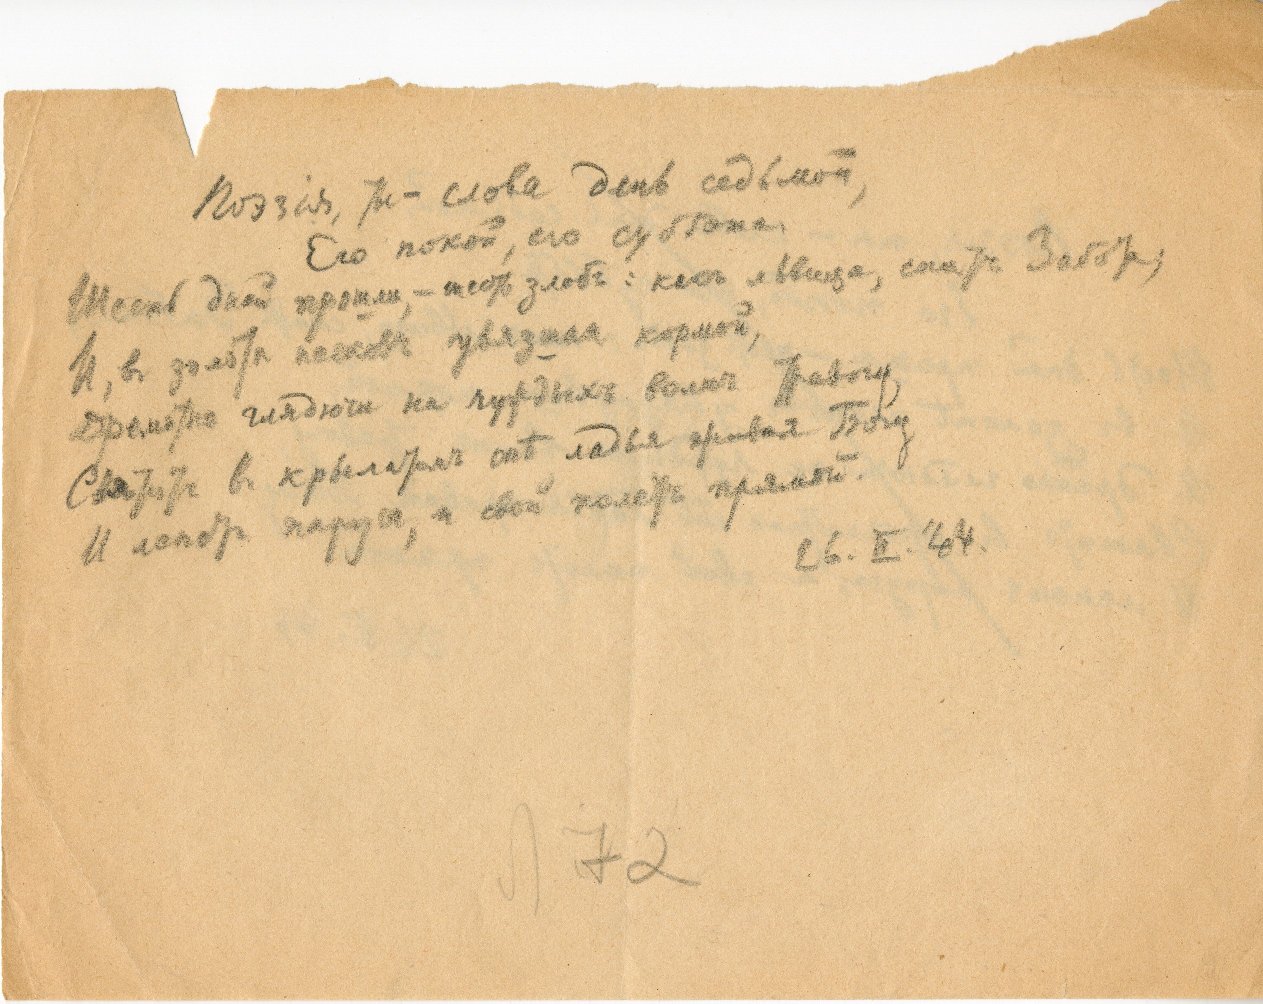 Поэзія, ты – слова день седьмой,
Его покой, его суббота.
Шесть дней прошли, – шесть злобъ: какъ львица, спитъ Забота;
И, въ золотѣ песковъ увязшая кормой,
Дремотно глядючи на чуждыхъ волнъ тревогу,
Святитъ въ крылатомъ снѣ ладья живая Богу
И лепетъ паруса, и свой полетъ прямой.
26. II. '44.
Л 72